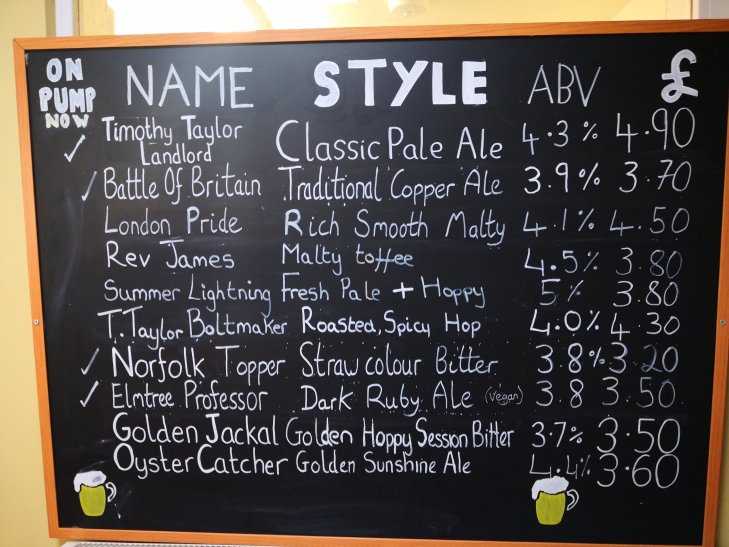 ON PUMP NOW NAME STYLE ABV £
✓ Timothy Taylor Landlord Classic Pale Ale 4.3% 4.90
✓ Battle Of Britain Traditional Copper Ale 3.9% 3.70
London Pride Rich Smooth Malty 4.1% 4.50
Rev James Malty toffee 4.5% 3.80
Summer Lightning Fresh Pale + Hoppy 5% 3.80
T.Taylor Boltmaker Roasted, Spicy Hop 4.0% 4.30
✓ Norfolk Topper Straw colour Bitter 3.8% 3.20
✓ Elmtree Professor Dark Ruby Ale (vegan) 3.8 3.50
Golden Jackal Golden Hoppy Session Bitter 3.7% 3.50
Oyster Catcher Golden Sunshine Ale 4.4% 3.60